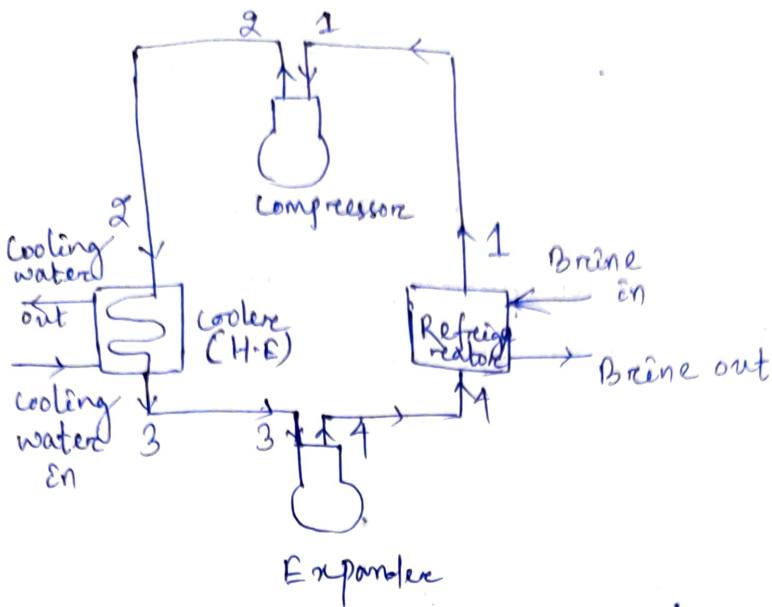 2 1
Compressor
2
1
Cooling
water
out
Cooler
(H.E)
Brine
in
Refrige
rator
Brine out
Cooling
water
in
3
3 4
4
Expander